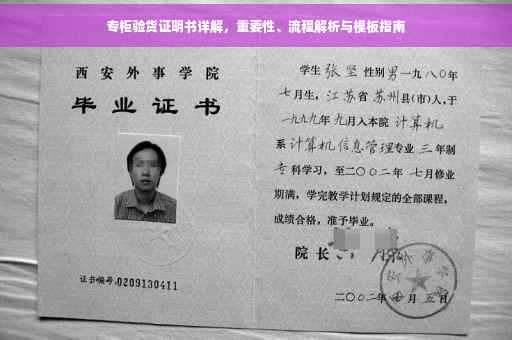 专柜验货证明书详解，重要性、流程解析与模板指南
西安外事学院
毕业证书
证书编号:0209130411
学生 张坚 性别 男 一九八〇年
七月生，江苏省 苏州县(市)人,于
一九九九年 九月入本院 计算机
系 计算机信息管理专业 三 年制
专 科学习，至二〇〇二年 七月修业
期满，学完教学计划规定的全部课程，
成绩合格，准予毕业。
院长
二〇〇二年 七 月 五 日